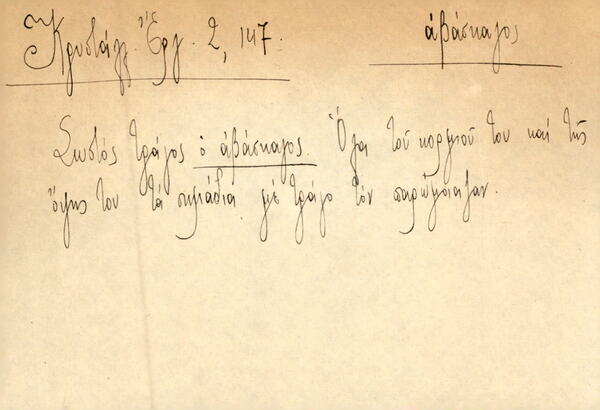 Κρυστάλλ. Ἔργ. 2, 147.
ἀβάσκαγος
Σωστός τράγος ὁ ἀβάσκαγος. Ὅλα τοῦ κορμιοῦ του καί τῆς
ὄψης του τά σημάδια μέ τράγο τόν παρωμοίαζαν.